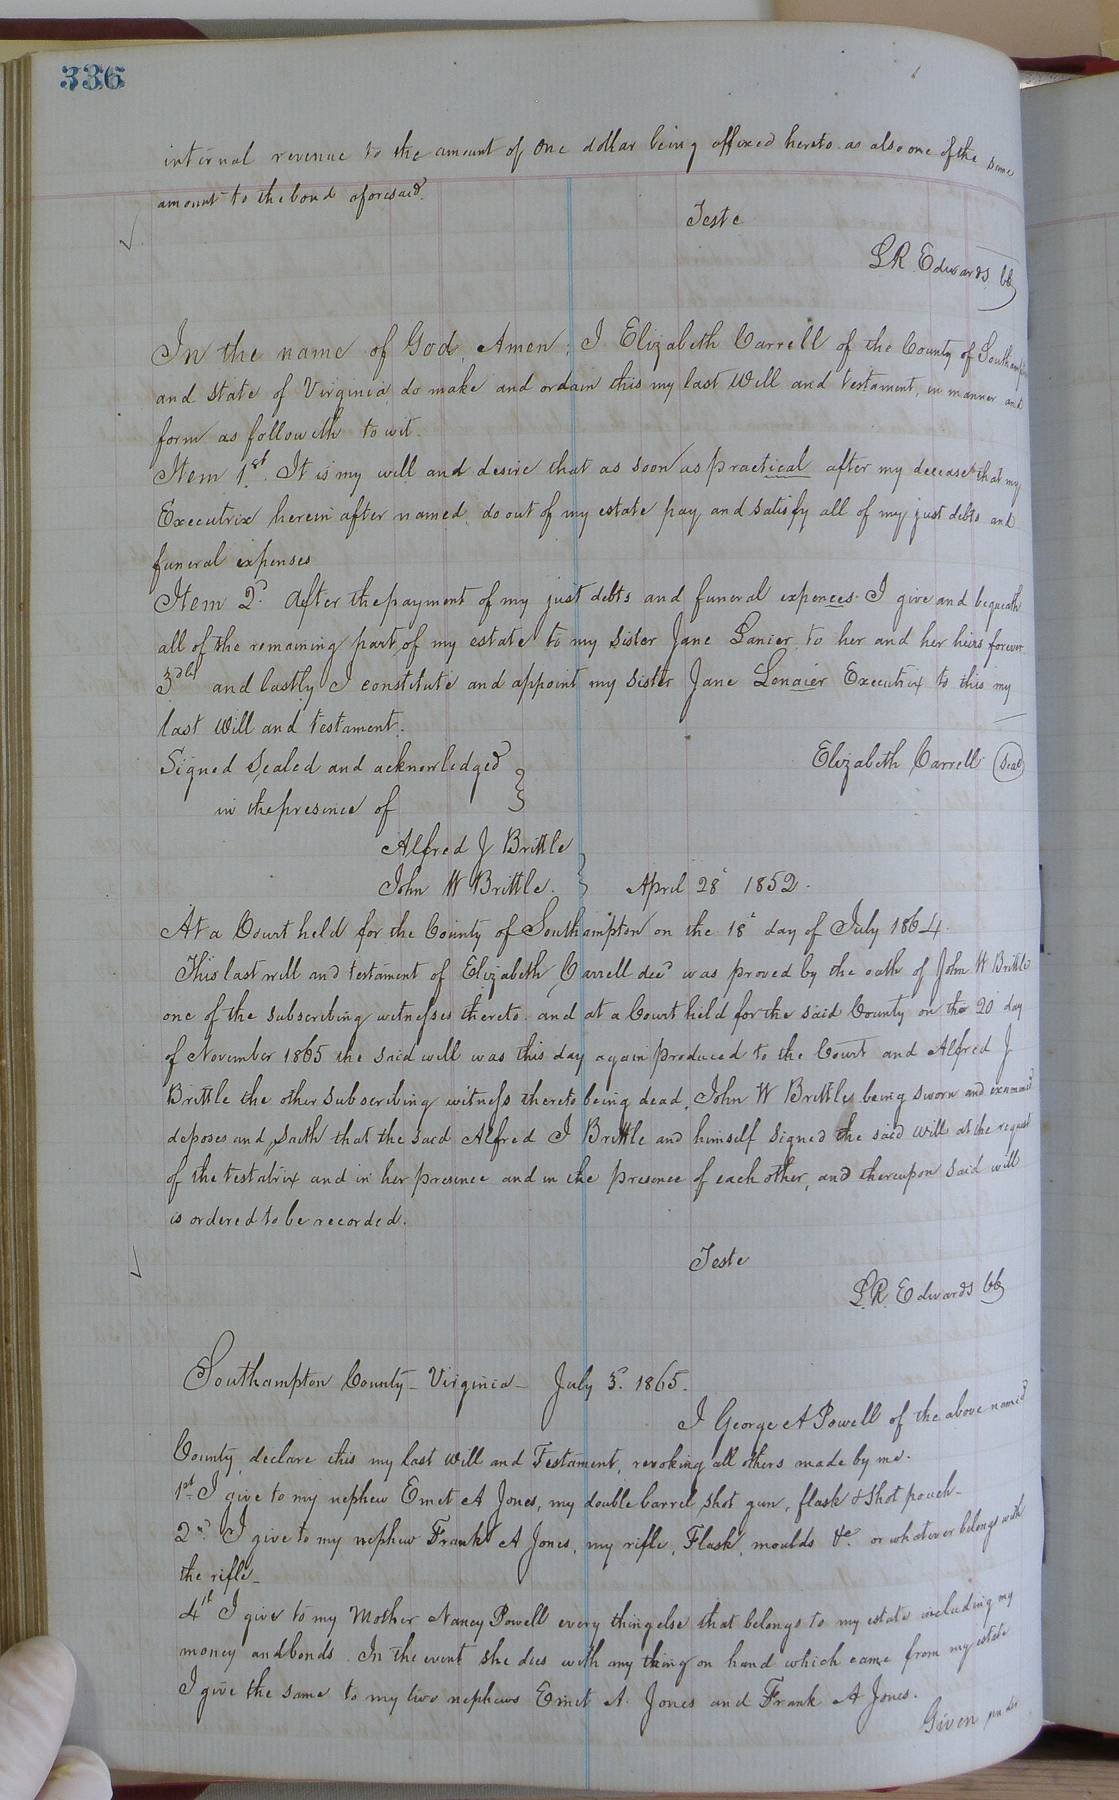 336
internal revenue to the amount of one dollar being affixed hereto as also one of the same
amount to the bond aforesaid.
Teste
L R Edwards CC
In the name of God, Amen; I Elizabeth Carrell of the County of Southampton
and state of Virginia do make and ordain this my last Will and testament, in manner and
form as followith to wit.
Item 1st. It is my will and desire that as soon as practical after my decease that my
Executrix herein after named, do out of my estate pay and satisfy all of my just debts and
funeral expenses
Item 2d. After the payment of my just debts and funeral expences. I give and bequeath
all of the remaining part of my estate to my Sister Jane Lanier to her and her heirs forever.
3dly and lastly I constitute and appoint my sister Jane Lenaier Executrix to this my
last will and testament.
Signed Sealed and acknowledged
Elizabeth Carrell Seal
in the presence of
Alfred J Brittle
John W Brittle. April 28 1852.
At a Court held for the County of Southampton on the 18 day of July 1864.
This last will and testament of Elizabeth Carrell decd was proved by the oath of John W Brittle
one of the subscribing witnesses thereto. and at a Court held for the said County on the 20 day
of November 1865 the said will was this day again produced to the Court and Alfred J
Brittle the other subscribing witness thereto being dead, John W Brittle being sworn and examined
deposes and saith that the said Alfred J Brittle and himself signed the said will at the request
of the testatrix and in her presence and in the presence of each other, and thereupon said will
is ordered to be recorded.
Teste
L. R. Edwards CC
Southampton County - Virginia - July 3. 1865.
I George A Powell of the above named
County, declare this my last will and Testament, revoking all others made by me.
1st I give to my nephew Emet A Jones, my double barrel shot gun, flask & shot pouch-
2nd I give to my nephew Frank A Jones, my rifle, Flask, moulds &c. or whatever belongs with
the rifle-
4th I give to my Mother Nancy Powell every thing else that belongs to my estate including my
money and bonds. In the event she dies with any thing on hand which came from my estate
I give the same to my two nephews Emet A. Jones and Frank A Jones.
Given under